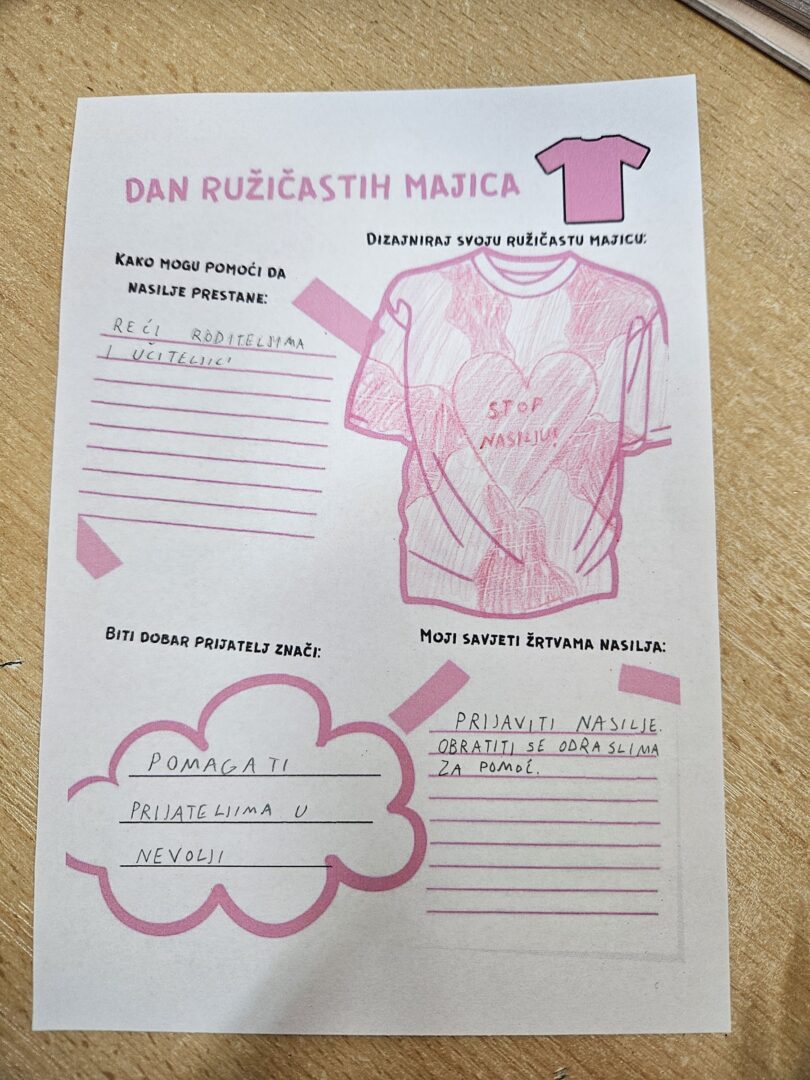 DAN RUŽIČASTIH MAJICA
DIZAJNIRAJ SVOJU RUŽIČASTU MAJICU:
KAKO MOGU POMOĆI DA
NASILJE PRESTANE:
REĆI RODITELJIMA
I UČITELJICI
STOP
NASILJU!
BITI DOBAR PRIJATELJ ZNAČI:
POMAGATI
PRIJATELJIMA U
NEVOLJI
MOJI SAVJETI ŽRTVAMA NASILJA:
PRIJAVITI NASILJE.
OBRATITI SE ODRASLIMA
ZA POMOĆ.